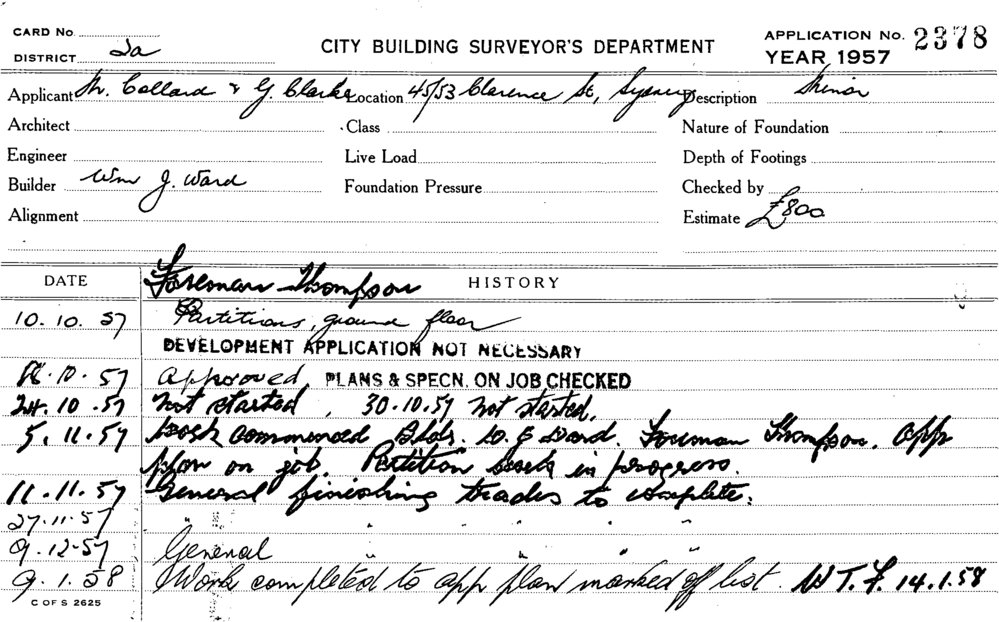 CARD No.
DISTRICT 2a
CITY BUILDING SURVEYOR'S DEPARTMENT
APPLICATION No. 2378
YEAR 1957
Applicant M. Collard & G. Clarke Location 45/53 Clarence St, Sydney Description Minor
Architect Class Nature of Foundation
Engineer Live Load Depth of Footings
Builder Wm J. Ward Foundation Pressure Checked by
Alignment Estimate £800
DATE Foreman Thompson HISTORY
10.10.57 Partitions, ground floor
DEVELOPMENT APPLICATION NOT NECESSARY
18.10.57 Approved PLANS & SPECN. ON JOB CHECKED
24.10.57 Not started, 30.10.57 Not started.
5.11.57 Work commenced Bldr. W. J Ward. Foreman Thompson. app
plan on job. Partition work in progress.
11.11.57 General finishing trades to complete.
27.11.57 " " " " "
9.12.57 General " " " "
9.1.58 Work completed to app plan marked off list. W T. F. 14.1.58
C OF S 2625